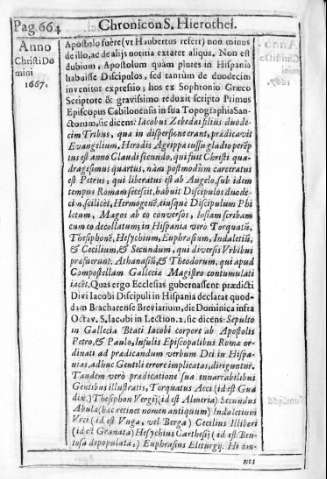 Pag 664
Chronicon S, Hierothei.
Anno
Christi Do
mini
1667.
Apostolo fuere (vt Haubertus refert) non minus
de illo, ac de alijs notitia extaret aliqua. Non est
dubium, Apostolum quàm plures in Hispania
habuisse Discipulos, sed tantùm de duodecim
invenitur expressio; hos ex Sophronio Græco
Scriptore & gravissimo reduxit scripto Primus
Episcopus Cabilonensis in sua Topographia San-
ctorum, sic dicens: Iacobus Zebedæi filius duode-
cim Tribus, qua in dispersione erant, prædicavit
Evangelium, Herodis Agrippa iussu gladio peremp-
tus est anno Claudij secundo, qui fuit Christi qua-
dragesimus quartus, nam postmodùm carceratus
est Petrus, qui liberatus est ab Angelo, sub idem
tempus Romam secessit, habuit Discipulos duode-
cim, scilicet, Hermogenè, eiusque Discipulum Phi
letum, Magos ab eo conversos, Iosiam scribam
cum eo decollatum, in Hispania verò Torquatū,
Thesiphonē, Hesychium, Euphrasium, Indaletiū,
& Cecilium, & Secundum, qui diversis Vrbibus
præfuerunt. Athanasiū, & Theodorum, qui apud
Compostellam Gallecia Magistro contumulati
iacēt. Quas ergo Ecclesias gubernassent prædicti
Divi Iacobi Discipuli in Hispania declarat quod-
dam Bracharense Breviarium, sic Dominica infra
Octav. S. Iacobi in Lection. 2. sic dicens: Sepulto
in Gallecia Beati Iacobi corpore ab Apostolis
Petro, & Paulo, Insulis Episcopalibus Roma or-
dinati ad prædicandum verbum Dei in Hispa-
nias, adhuc Gentili errore implicatas, diriguntur.
Tandem verò prædicatione sua innumerabilibus
Gentibus illustratis, Torquatus Acci (id est Gua
dix:) Thesiphon Vergij (id est Almeria) Secundus
Abula (hæc retinet nomen antiquum) Indaletium
Vrci (id est Vnga, vel Berga) Cecilius Illiberi
(id est Granata) Hesychius Carthesij (id est
depopulata,) Euphrasius Eliturgij. Hi